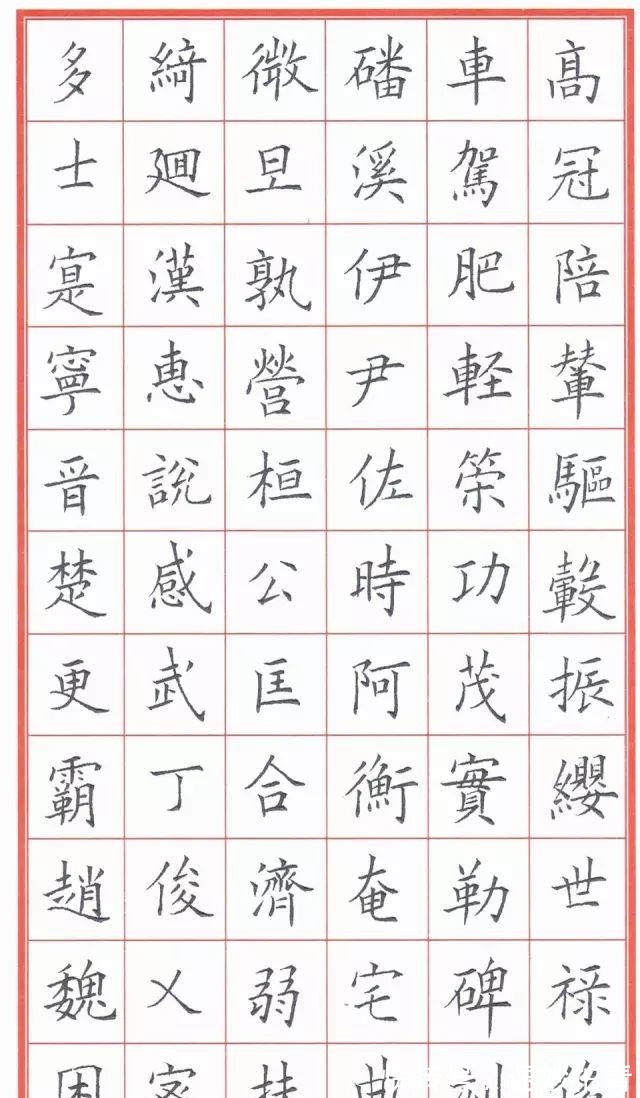 髙冠陪輦驅轂振纓世禄侈
車駕肥軽策功茂實勒碑刻
磻溪伊尹佐時阿衡奄宅曲
微旦孰營桓公匡合濟弱扶
綺廻漢惠說感武丁俊乂密
多士寔寧晋楚更霸趙魏困